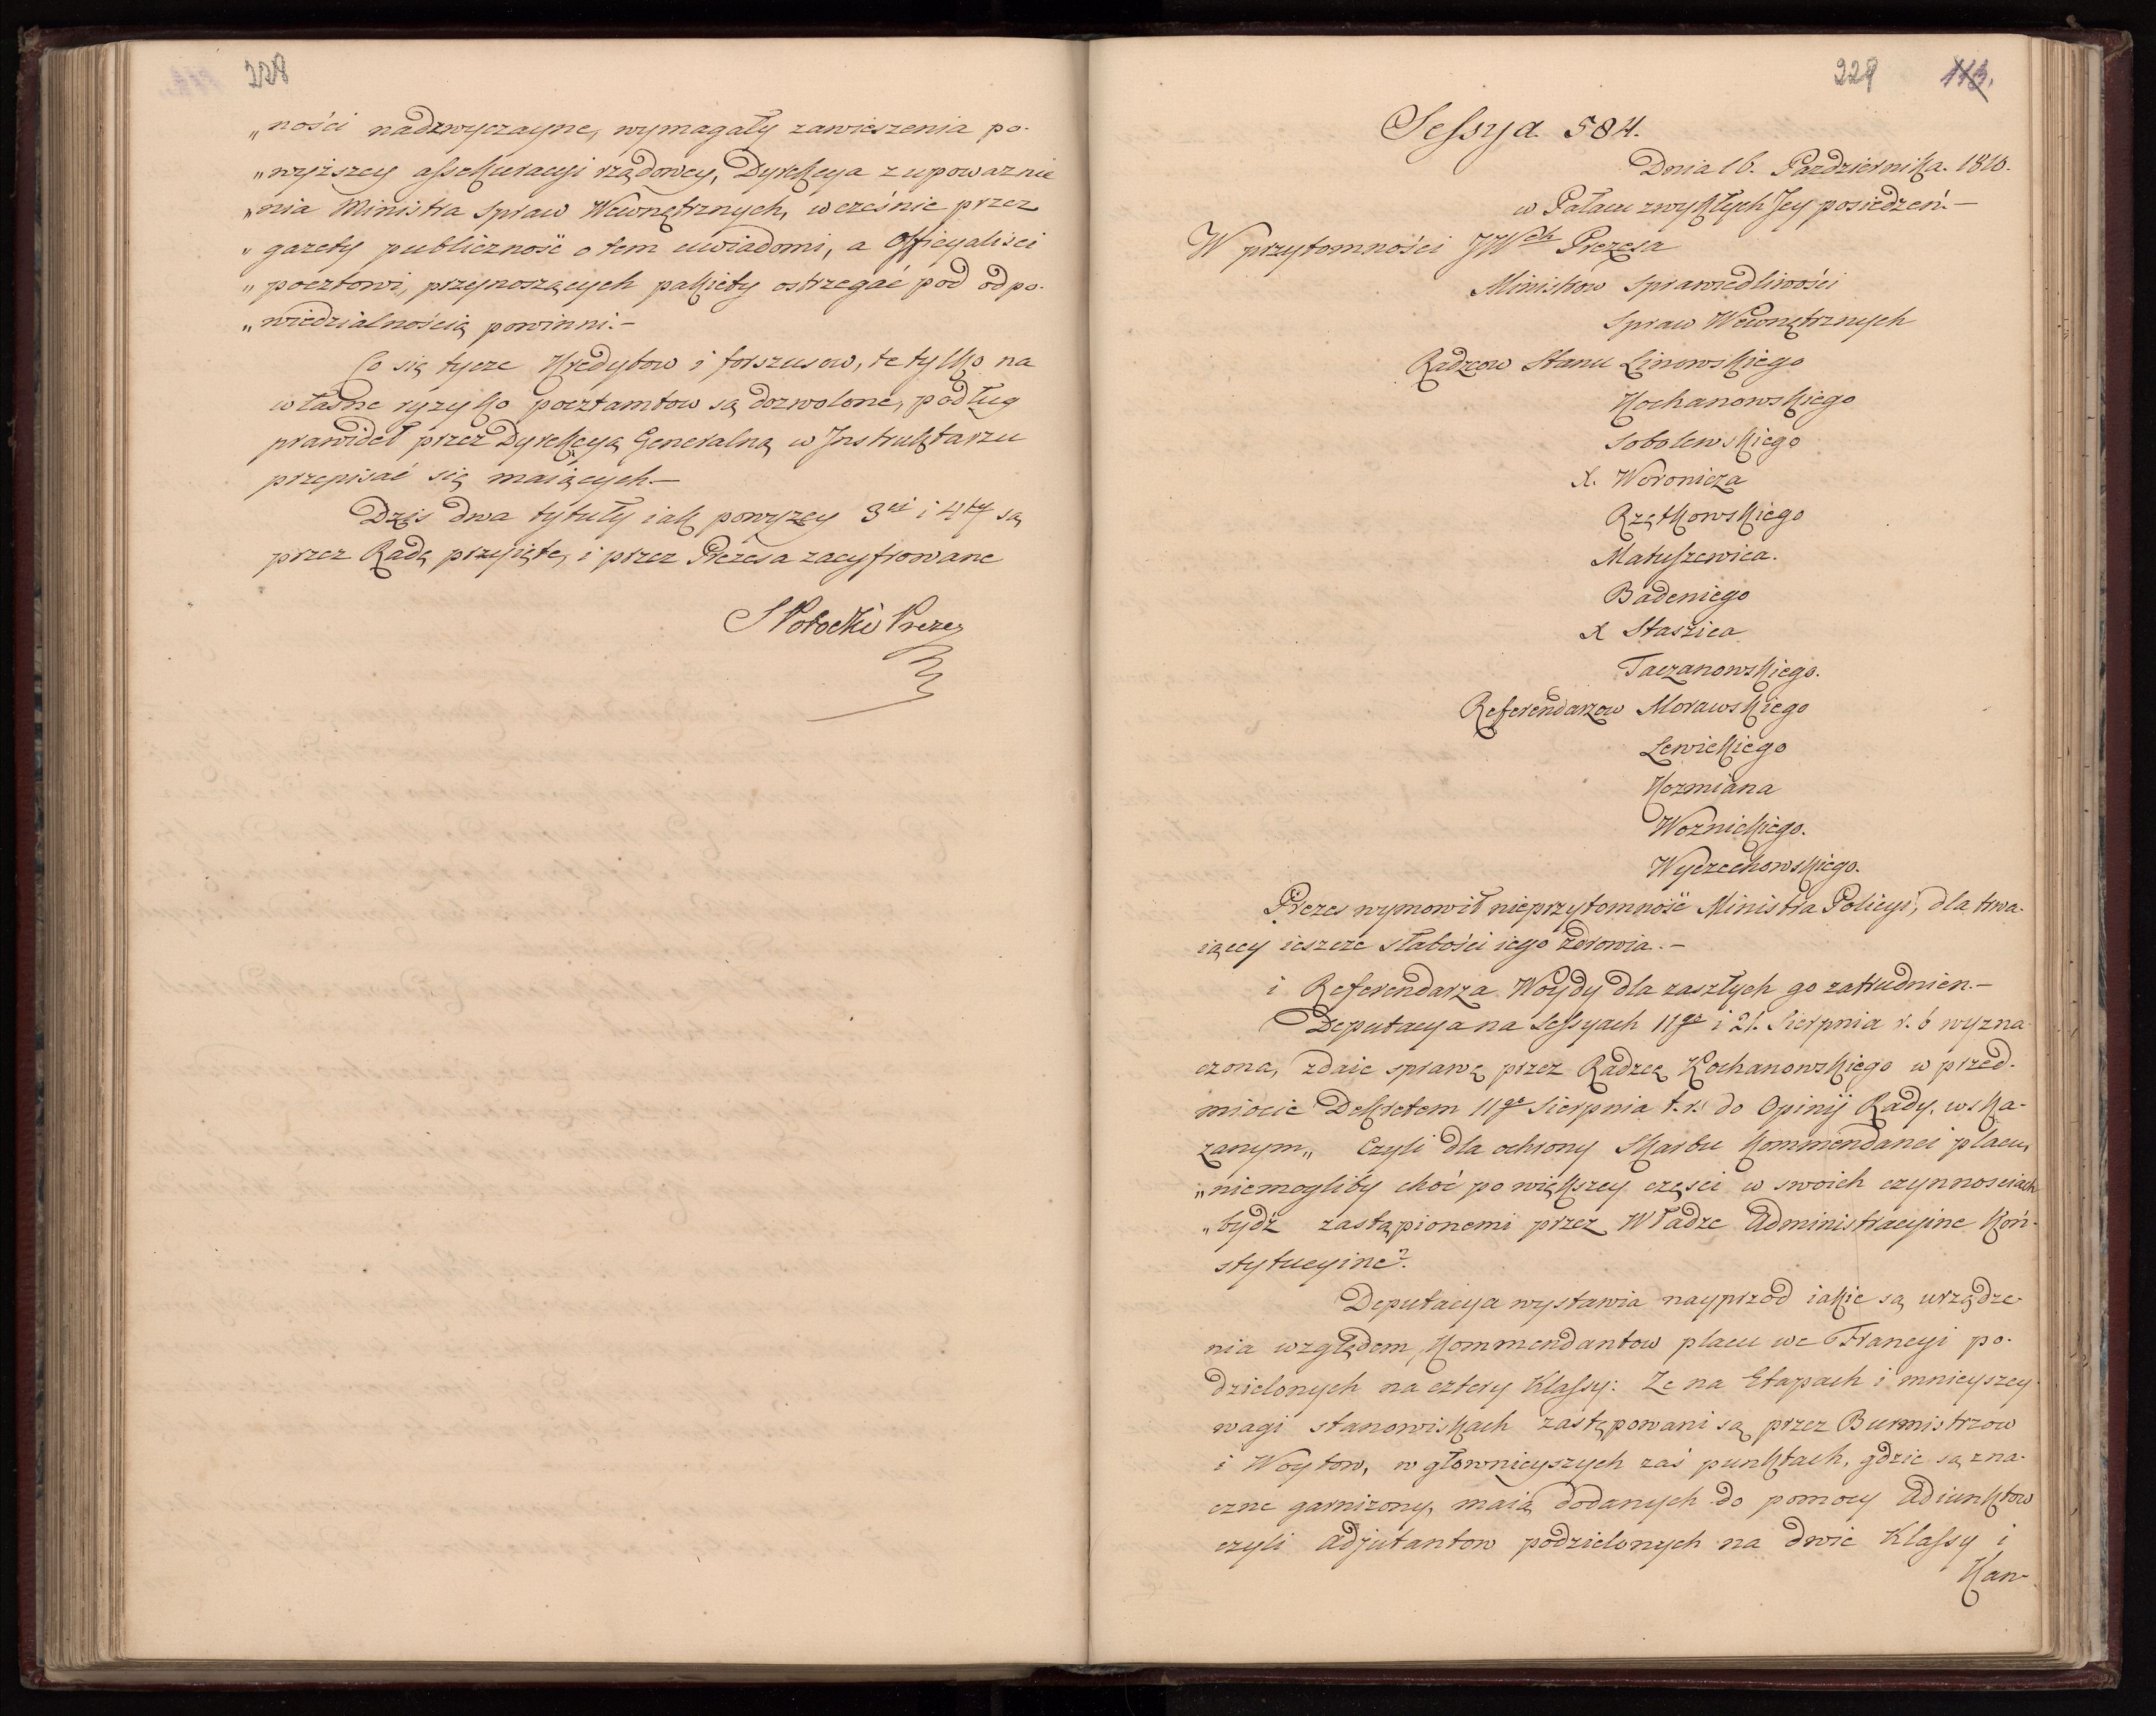 228
„ności nadzwyczayne, wymagały zawieszenia po-
„wyższey assekuracyi rządowey, Dyrekcya z upoważnie
„nia Ministra Spraw Wewnętrznych, wcześnie przez
„gazety publiczność o tem uwiadomi, a Officyaliści
„pocztowi, przynoszących pakiety ostrzegać pod odpo-
„wiedzialnością powinni.-
Co się tycze Kredytow i forszusow, te tylko na
własne ryzyko pocztamtow są dozwolone, podług
prawideł przez Dyrekcyą Generalną w Instruktarzu
przepisać się maiących.-
Dziś dwa tytuły iak powyzey 3ci i 4ty są
przez Radę przyięte, i przez Prezesa zacyfrowane
S Potocki Prezes
229 113.
Sessya 584.
Dnia 16. Pazdziernika. 1810.
w Pałacu zwykłych Jey posiedzeń.-
W przytomności JWch Prezesa
Ministrow Sprawiedliwości
Spraw Wewnętrznych
Radzcow Stanu Linowskiego
Kochanowskiego
Sobolewskiego
X. Woronicza
Rzętkowskiego
Matuszewica.
Badeniego
X Staszica
Taczanowskiego.
Referendarzow Morawskiego
Lewickiego
Kozmiana
Woznickiego.
Wyczechowskiego.
Prezes wymowił nieprzytomność Ministra Policyi, dla trwa-
iącey ieszcze słabości iego zdrowia.-
i Referendarza Woydy dla zaszłych go zatrudnien.-
Deputacya na Sessyach 11go i 21. Sierpnia r. b wyzna
czona, zdaie sprawę przez Radzcę Kochanowskiego w przed-
miocie Dekretem 11go Sierpnia t. r. do Opinij Rady, wska-
zanym„ Czyli dla ochrony Skarbu Kommendanci placu,
„niemogliby choć po większey części w swoich czynnosciach
„bydź zastąpionemi przez Władze Administracyine Kon-
stytucyine?.
Deputacya wystawia nayprzod iakie są urządze-
nia względem Kommendantow placu we Francyi po-
dzielonych na cztery Klassy: Ze na Etapach i mnieyszey
wagi stanowiskach zastępowani są przez Burmistrzow
i Woytow, w głownieyszych zaś punktach, gdzie są zna-
czne garnizony, maią dodanych do pomocy Adiunktow
czyli Adjutantow podzielonych na dwie Klassy i
Kan-